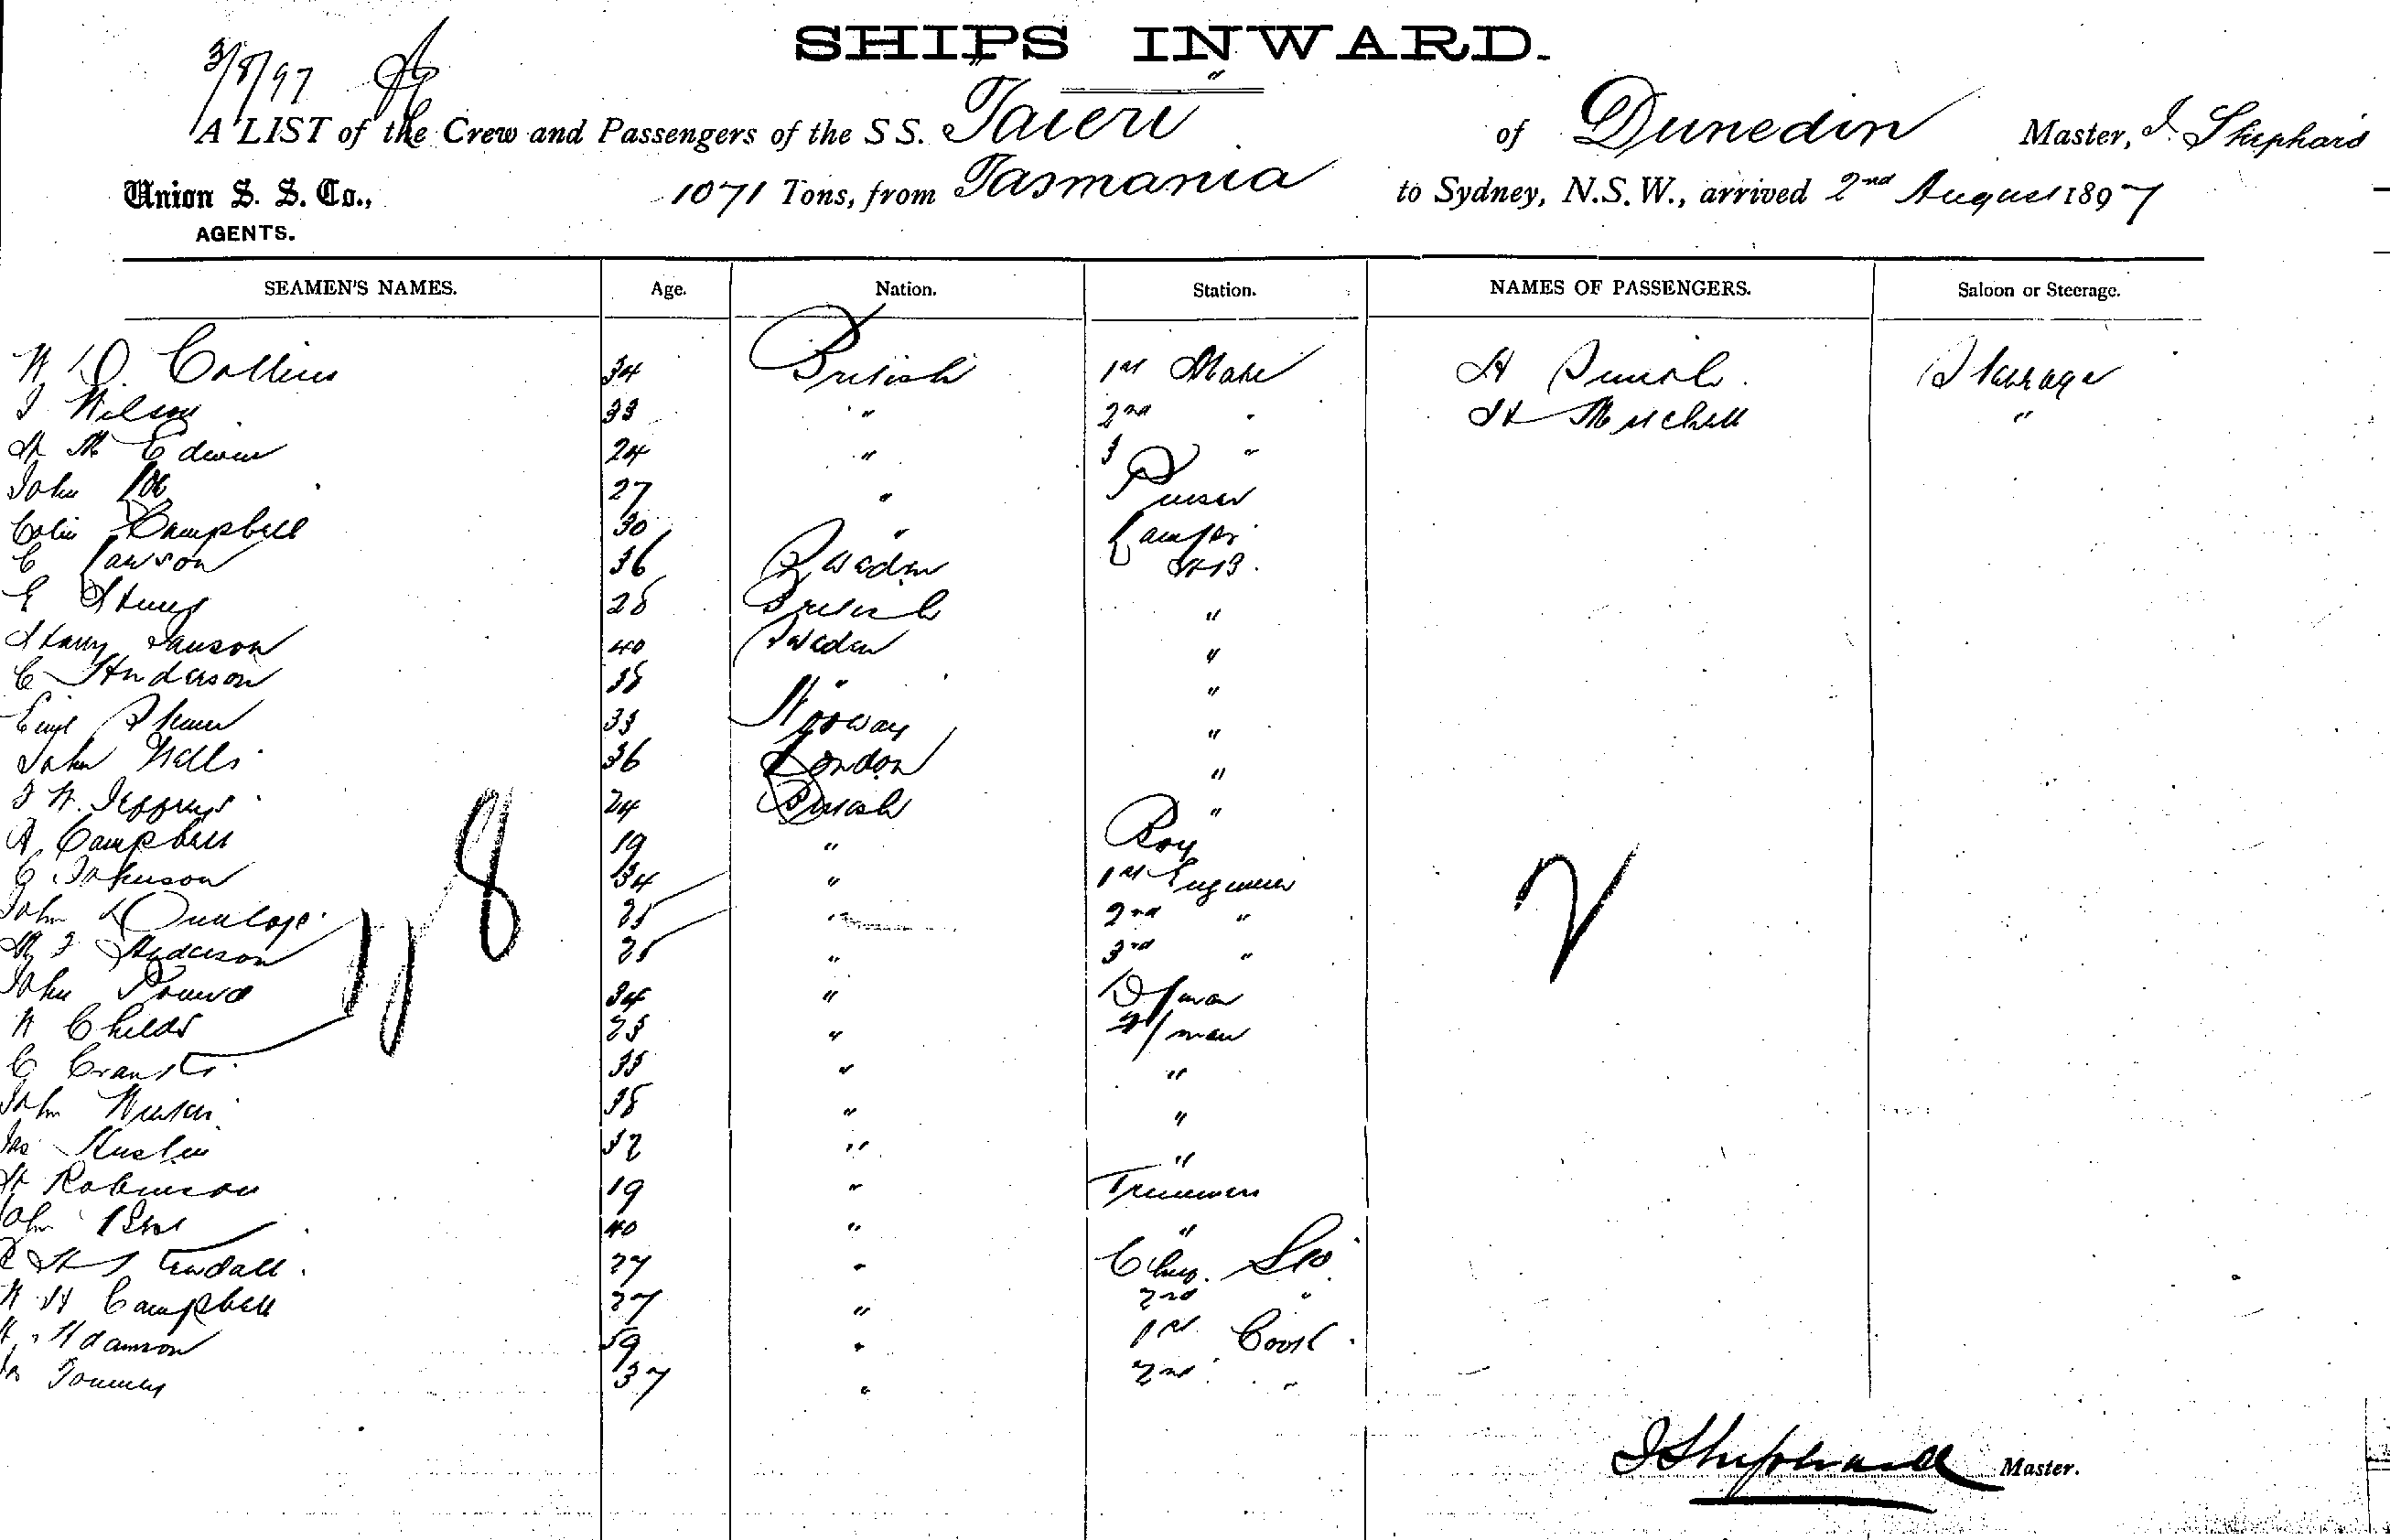 SHIPS INWARD.
3/8/97
A LIST of the Crew and Passengers of the S S. Taieri of Dunedin Master, J. Shephard
Union S. S. Co., 1071 Tons, from Tasmania to Sydney, N.S.W., arrived 2nd August 1897
AGENTS.
SEAMEN'S NAMES. Age. Nation. Station. NAMES OF PASSENGERS. Saloon or Steerage.
W D. Collins 34 British 1st Mate H Steerage
J Wilson 33 " 2nd " H Mitchell "
H M Edwin 24 " 3 "
John 27 " Purser
Colin Campbell 30 " Lamps
C Lawson 36 Sweden AB.
E 28 British "
Harry Janson 40 Sweden "
C Anderson 38 " "
33 Norway "
John Wells 36 London "
J W. Jeffreys 24 British "
A Campbell 19 " Boy
C Johnson 34 " 1st Engineer
John Dunlop 25 " 2nd "
J Anderson 28 " 3rd "
John Pound 34 " D/man
W Childs 23 " F/man
C 33 " "
John 38 " "
Jas Austin 32 " "
H Robinson 19 " Trimmer
John 40 " "
27 " Chief Std
W H Campbell 27 " 2nd "
Adamson 59 " 1st Cook
37 " 2nd "
118
2
J Shephard Master.